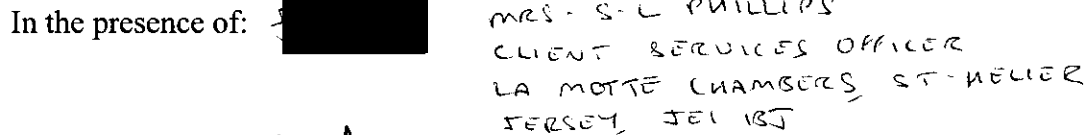 In the presence of: MRS. S. L PHILLIPS
CLIENT SERVICES OFFICER
LA MOTTE CHAMBERS, ST. HELIER
JERSEY, JE1 1BJ